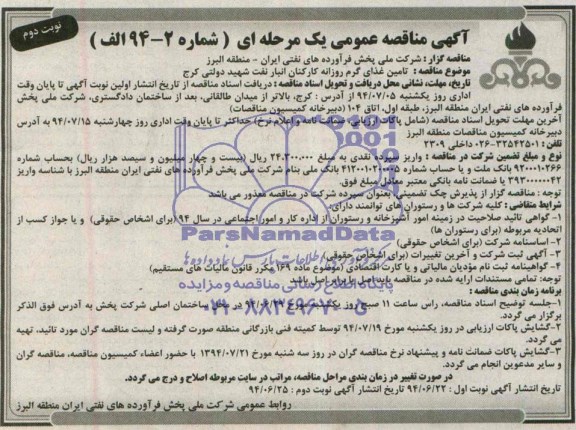 نوبت دوم
آگهی مناقصه عمومی یک مرحله ای ( شماره ۲-۹۴ الف )
مناقصه گزار : شرکت ملی پخش فرآورده های نفتی ایران - منطقه البرز
موضوع مناقصه : تامین غذای گرم روزانه کارکنان انبار نفت شهید دولتی کرج
تاریخ، مهلت، نشانی محل دریافت و تحویل اسناد مناقصه : دریافت اسناد مناقصه از تاریخ انتشار اولین نوبت آگهی تا پایان وقت
اداری روز یکشنبه ۹۴/۰۷/۰۵ از آدرس : کرج، بالاتر از میدان طالقانی، بعد از ساختمان دادگستری، شرکت ملی پخش
فرآورده های نفتی ایران منطقه البرز، طبقه اول، اتاق ۱۰۴ (دبیرخانه کمیسیون مناقصات)
آخرین مهلت تحویل اسناد مناقصه (شامل پاکات ارزیابی، ضمانت نامه و اعلام نرخ) حداکثر تا پایان وقت اداری روز چهارشنبه ۹۴/۰۷/۱۵ به آدرس
دبیرخانه کمیسیون مناقصات منطقه البرز
تلفن : ۳۲۵۴۲۵۰۱-۰۲۶ داخلی ۲۳۰۹
نوع و مبلغ تضمین شرکت در مناقصه : واریز سپرده نقدی به مبلغ ۲۴،۳۰۰،۰۰۰ ریال (بیست و چهار میلیون و سیصد هزار ریال) بحساب شماره
۹۲۰۰۰۱۰۳۶۶ بانک ملت و یا حساب شماره ۴۱۲۰۰۱۰۲۰۰۰۵ بانک ملی بنام شرکت ملی پخش فرآورده های نفتی ایران منطقه البرز با شناسه واریز
۳۹۳۰۰۰۰۰۴۲ یا ضمانت نامه بانکی معتبر معادل مبلغ فوق.
توجه : مناقصه گزار از پذیرش چک تضمینی بعنوان سپرده شرکت در مناقصه معذور می باشد.
شرایط متقاضی : کلیه شرکت ها و رستوران های توانمند دارای:
۱-گواهی تائید صلاحیت در زمینه امور آشپزخانه و رستوران از اداره کار و امور اجتماعی در سال ۹۴ (برای اشخاص حقوقی) و یا جواز کسب از
اتحادیه مربوطه (برای رستوران ها)
۲-اساسنامه شرکت (برای اشخاص حقوقی)
۳-آگهی ثبت شرکت و آخرین تغییرات (برای اشخاص حقوقی)
۴-گواهینامه ثبت نام مؤدیان مالیاتی و یا کارت اقتصادی (موضوع ماده ۱۶۹ مکرر قانون مالیات های مستقیم)
توجه: تمامی مستندات ارایه شده در مناقصه بایستی اصل یا برابر اصل باشد.
برنامه زمان بندی مناقصه :
۱-جلسه توضیح اسناد مناقصه، راس ساعت ۱۱ صبح روز یکشنبه مورخ ۹۴/۰۶/۲۹ در محل ساختمان اصلی شرکت پخش به آدرس فوق الذکر
برگزار می گردد.
۲-گشایش پاکات ارزیابی در روز یکشنبه مورخ ۹۴/۰۷/۱۹ توسط کمیته فنی بازرگانی منطقه صورت گرفته و لیست مناقصه گران مورد تائید، تهیه
می گردد.
۳-گشایش پاکات ضمانت نامه و پیشنهاد نرخ مناقصه گران در روز سه شنبه مورخ ۱۳۹۴/۰۷/۲۱ با حضور اعضاء کمیسیون مناقصه، مناقصه گران
و سایر مدعوین انجام می گردد.
در صورت تغییر در زمان بندی مراحل مناقصه، مراتب در سایت مربوطه اصلاح و درج می گردد.
تاریخ انتشار آگهی نوبت اول : ۹۴/۰۶/۲۲ تاریخ انتشار آگهی نوبت دوم : ۹۴/۰۶/۲۵
روابط عمومی شرکت ملی پخش فرآورده های نفتی ایران منطقه البرز
ParsNamadData
پایگاه اطلاع رسانی مناقصه و مزایده
۰۲۱-۸۸۳۴۹۶۷۰-۵